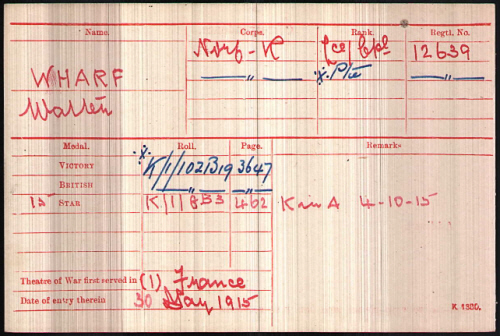 Name. Corps. Rank. Regtl. No.
WHARF Norf-R L/ce/Cpl 12639
Walter —„— x. Pte —„—
Medal. Roll. Page. Remarks
VICTORY x. K/1/102B19 3647
BRITISH —„— —„—
15 STAR K/1/8B3 462 K in A 4-10-15
Theatre of War first served in (1) France
Date of entry therein 30 May 1915
K 1380.